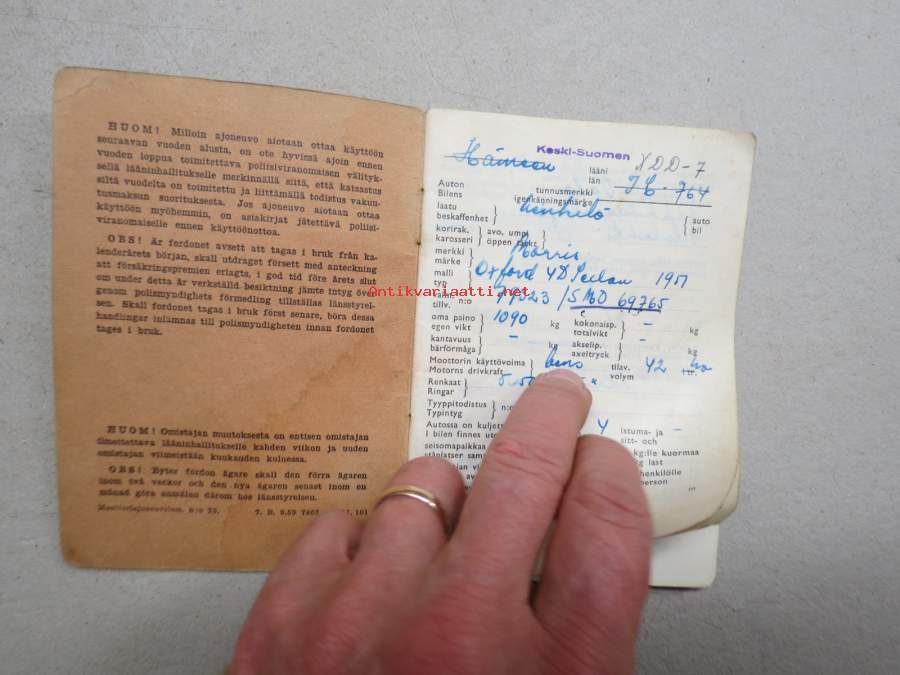 HUOM! Milloin ajoneuvo aiotaan ottaa käyttöön
seuraavan vuoden alusta, on ote hyvissä ajoin ennen
vuoden loppua toimitettava poliisiviranomaisen välityk-
sellä lääninhallitukselle merkinnällä siitä, että katsastus
siltä vuodelta on toimitettu ja liittämällä todistus vakuu-
tusmaksun suorituksesta. Jos ajoneuvo aiotaan ottaa
käyttöön myöhemmin, on asiakirjat jätettävä poliisi-
viranomaiselle ennen käyttöönottoa.
OBS! Är fordonet avsett att tagas i bruk från ka-
lenderårets början, skall utdraget försett med anteckning
att försäkringspremien erlagts, i god tid före årets slut
om under detta år verkställd besiktning jämte intyg över
genom polismyndighets förmedling tillställas länsstyrel-
sen. Skall fordonet tagas i bruk först senare, böra dessa
handlingar inlämnas till polismyndigheten innan fordonet
tages i bruk.
HUOM! Omistajan muutoksesta on entisen omistajan
ilmoitettava lääninhallitukselle kahden viikon ja uuden
omistajan viimeistään kuukauden kuluessa.
OBS! Byter fordon ägare skall den förra ägaren
inom två veckor och den nya ägaren senast inom en
månad göra anmälan därom hos länsstyrelsen.
7. B. 9.50
101
Keski-Suomen
Hämeen lääni XDD-7
län
Auton tunnusmerkki
Bilens igenkänningsmärke
laatu auto
beskaffenhet bil
korirak. avo. umpi
karosseri öppen täckt
merkki Morris
märke
malli Oxford Sedan
typ
Antikvariaatti.net
valm. n:o
tillv. 69765
oma paino 1090 kg kokonaisp. – kg
egen vikt totalvikt
kantavuus – kg akselip. – kg
bärförmåga axeltryck
Moottorin käyttövoima tilav. 42
Motorns drivkraft volym
Renkaat
Ringar
Tyyppitodistus n:o
Typintyg
Autossa on kuljett 4 istuma- ja –
I bilen finnes sitt- och
seisomapaikkaa kg:lle kuormaa
ståplatser last
henkilölle
person